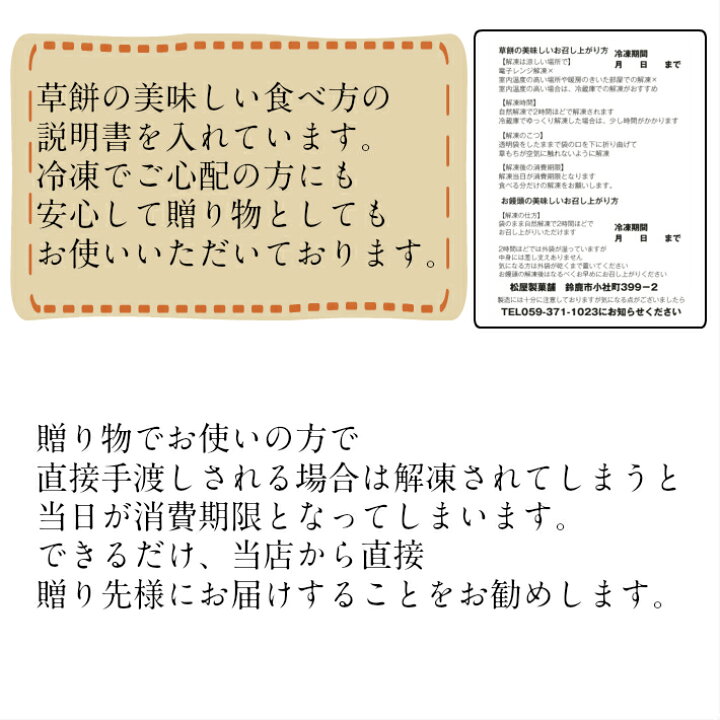 草餅の美味しい食べ方の
説明書を入れています。
冷凍でご心配の方にも
安心して贈り物としても
お使いいただいております。
草餅の美味しいお召し上がり方
冷凍期間
月 日 まで
【解凍は涼しい場所で】
電子レンジ解凍×
室内温度の高い場所や暖房のきいた部屋での解凍×
室内温度の高い場合は、冷蔵庫での解凍がおすすめ
【解凍時間】
自然解凍で2時間ほどで解凍されます
冷蔵庫でゆっくり解凍した場合は、少し時間がかかります
【解凍のこつ】
透明袋をしたままで袋の口を下に折り曲げて
草もちが空気に触れないように解凍
【解凍後の消費期限】
解凍当日が消費期限となります
食べる分だけの解凍をお願いします。
お饅頭の美味しいお召し上がり方
【解凍の仕方】
袋のまま自然解凍で2時間ほどで
お召し上がりいただけます
冷凍期間
月 日 まで
2時間ほどでは外袋が湿っていますが
中身には差し支えありません
気になる方は外袋が乾くまで置いてください
お饅頭の解凍後はなるべくお早めにお召し上がりください
松屋製菓舗 鈴鹿市小社町399−2
製造には十分に注意しておりますが気になる点がございましたら
TEL059-371-1023にお知らせください
贈り物でお使いの方で
直接手渡しされる場合は解凍されてしまうと
当日が消費期限となってしまいます。
できるだけ、当店から直接
贈り先様にお届けすることをお勧めします。